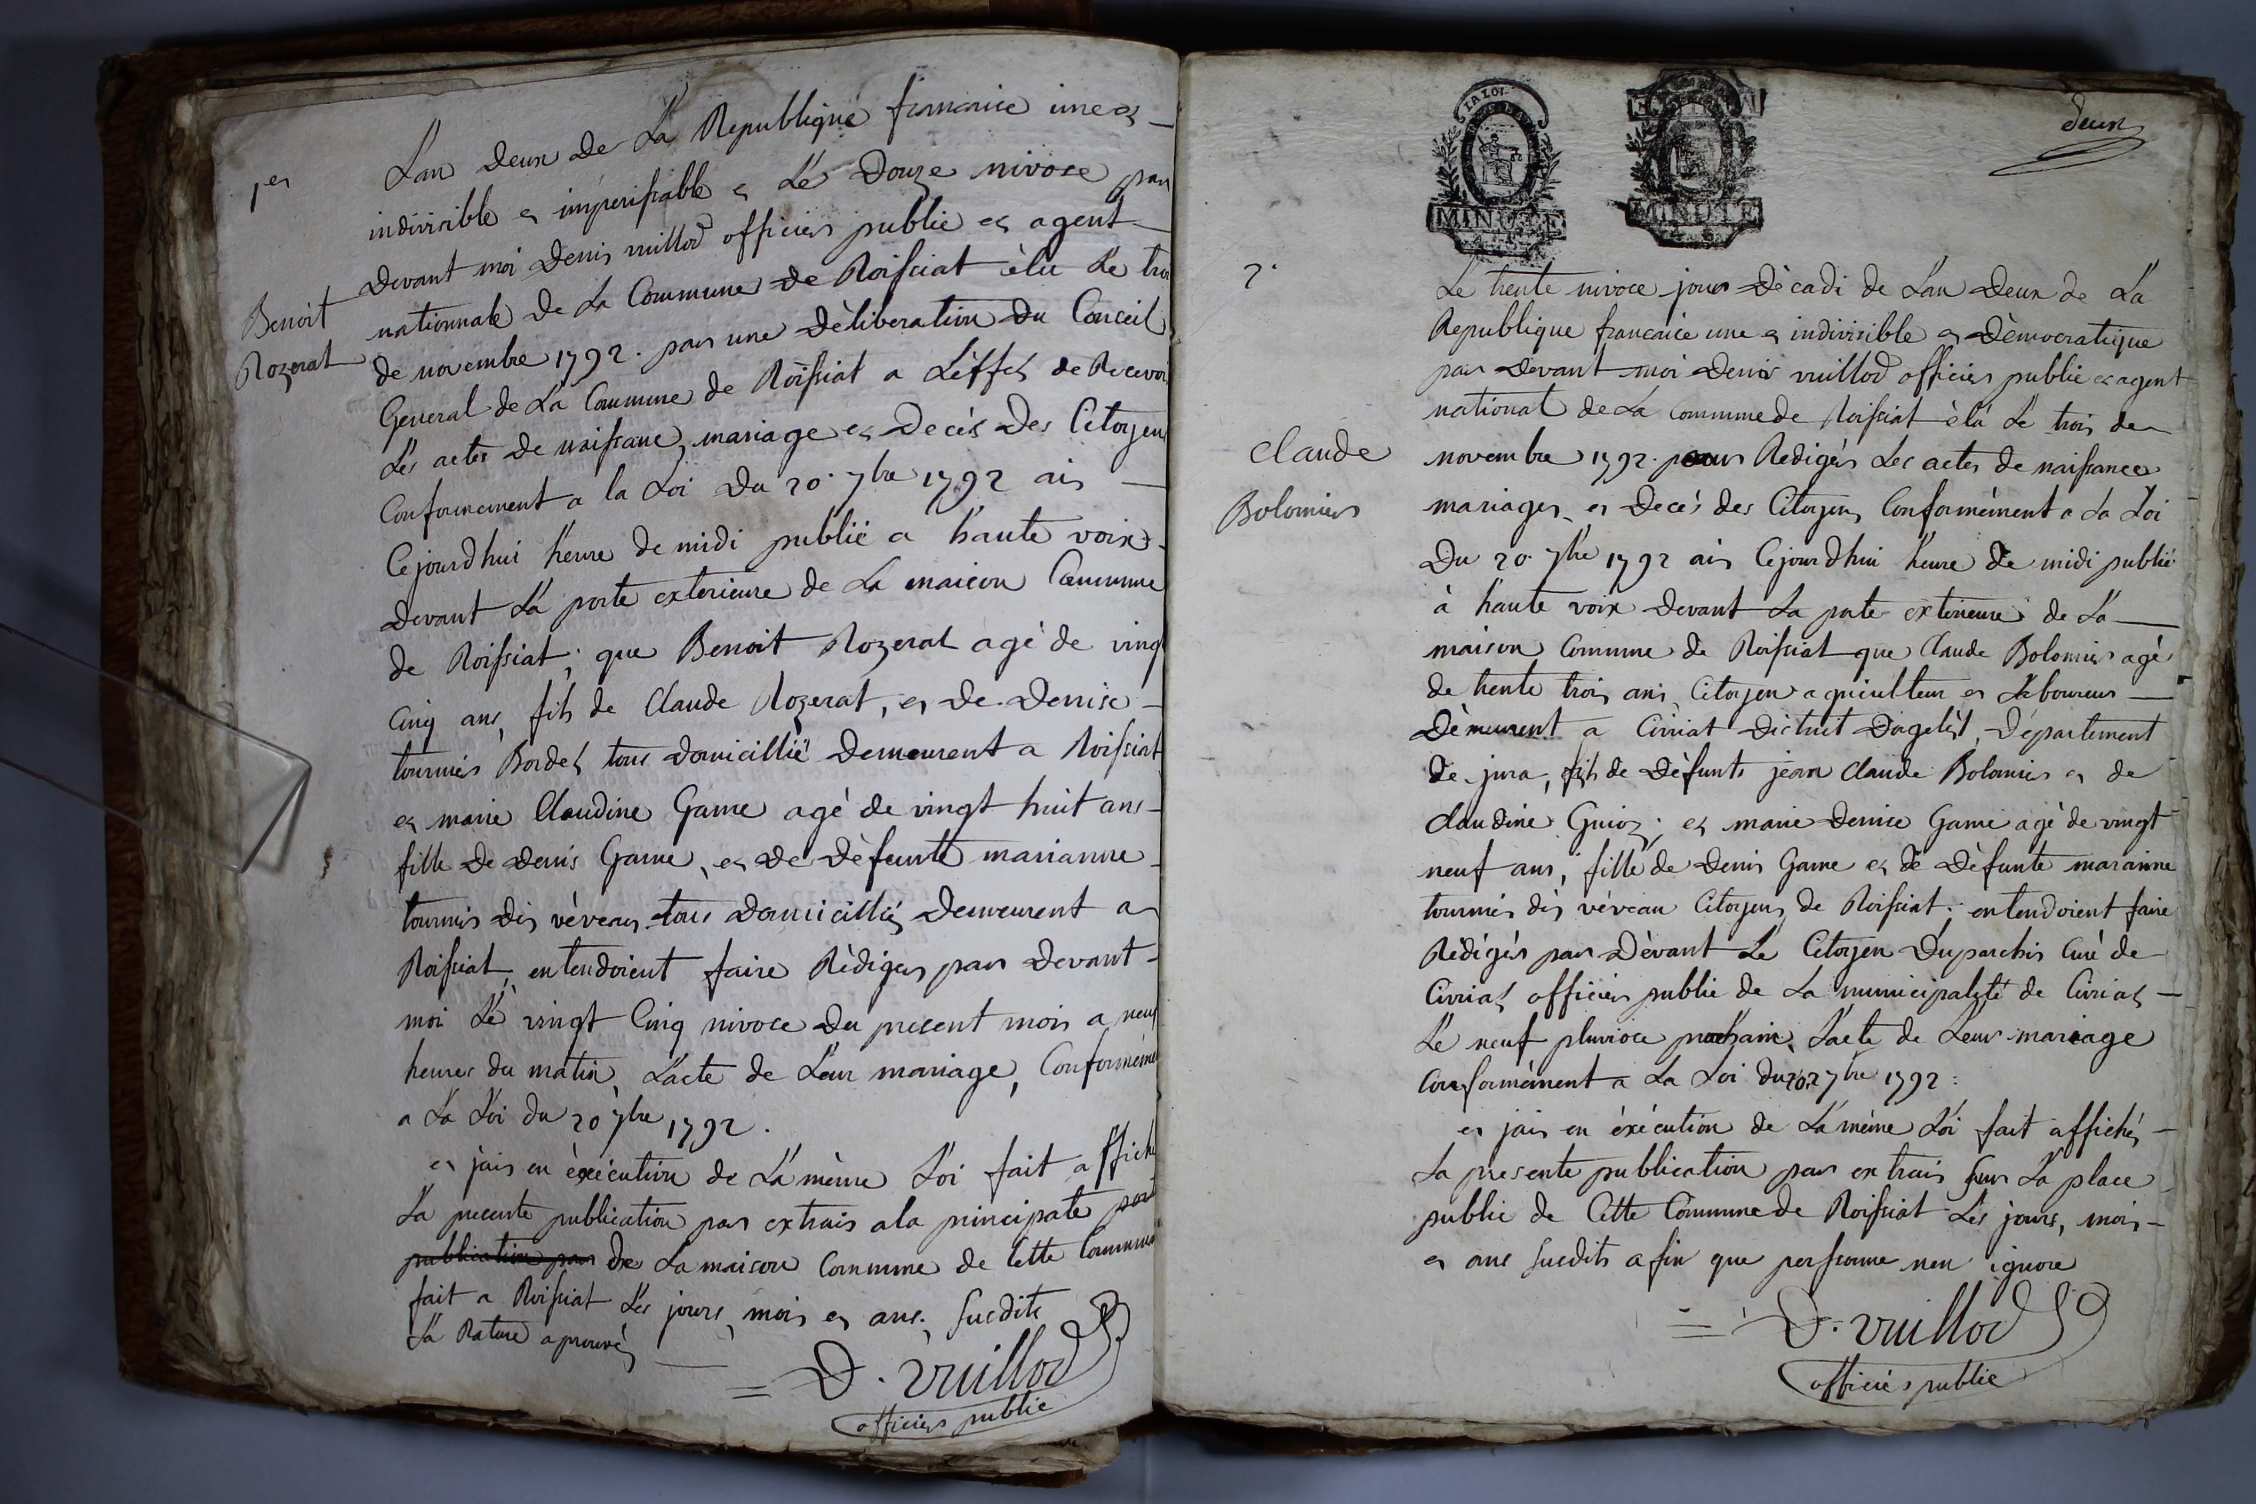 1er
Benoit
Rozerat
L'an deux de La Republique francaice une et
indivisible et imperissable et Le Douze nivose par
devant moi Denis vuillod officier public et agent
nationnale de La Commune de Roissiat élu Le troi
de novembre 1792. par une déliberation du Conceil
General de La Commune de Roissiat a L'éffet de Recevoir
Les actes de naissance, mariage et Decés Des Citoyens
Conformement a la Loi Du 20. 7bre 1792 ais
Cejourdhui heure de midi publié a haute voix
devant La porte exterieure de La maison Commune
de Roissiat; que Benoit Rozerat agé de vingt
Cinq ans, fils de Claude Rozerat, et De Denise
tournier Bordet tous domicillié Demeurent a Roissiat
et marie Claudine Game agé de vingt huit ans
fille de denis Game, et De défunte marianne
tournier dis véveau tous Domicilliés Demeurent a
Roissiat, entendoient faire Rédiger par devant
moi Le vingt Cinq nivose du present mois a neuf
heures du matin, L'acte de Leur mariage, Conformément
a La Loi du 20 7bre 1792.
et jais en éxécution de La même Loi fait affiché
La presente publication par extrais a la principale porte
publication par de La maison Commune de Cette Commune
fait a Roissiat Les jours, mois et ans, Susdits
La Rature aprouvés
D. vuillod
officier public
LA LOI
MINUTE
MINUTE
deux
2.
Claude
Bolomier
Le trente nivoce jour Décadi de L'an Deux de La
Republique francaice une et indivisible et Démocratique
par devant moi denis vuillod officier public et agent
national de La commune de Roissiat élû Le trois de
novembre 1792. pour Redigér Les actes de naissance
mariages et Decés des Citoyens Conformément a La Loi
Du 20. 7bre 1792 ais Cejourdhui heure de midi publié
à haute voix devant La porte exterieure de La
maison Commune de Roissiat que Claude Bolomier agé
de trente trois ans Citoyen agriculteur et Laboureur
Démeurent a Civriat Dictrict Dorgelêt, Département
de jura, fils de défunts jean Claude Bolomier et de
Claudine Guioz; et marie denise Game agé de vingt
neuf ans, fille de Denis Game et de défunte marainne
tournier dis véveau Citoyens de Roissiat. entendoient faire
Rédigér par Dévant Le Citoyen Duparchis Curé de
Civriat officier public de La municipalité de Civriat
Le neuf pluvioce prochain, L'acte de Leur mariage
Conformément a La Loi du 20 7bre 1792:
et jais en éxécution de La même Loi fait affichér
La presente publication par extrais Sur La place
public de Cette Commune de Roissiat Les jours, mois
et ans Susdits afin que personne nen ignore
D. vuillod
officiér public